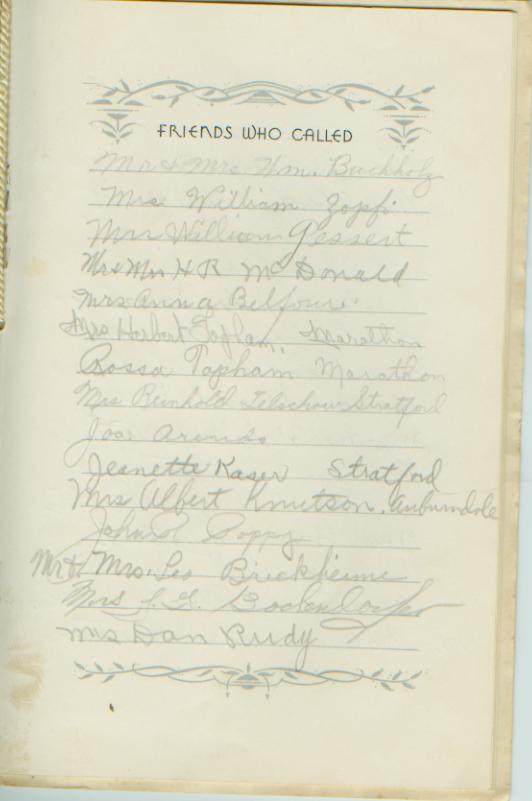 FRIENDS WHO CALLED
Mr & Mrs Wm. Buchholz
Mrs William Zopfi
Mrs William Gessert
Mr & Mrs H R McDonald
Mrs Anna Belfour
Mrs Herbert Topham, Marathon
Rossa Topham Marathon
Mrs Reinhold Telschow Stratford
Jos. Arends
Jeanette Kaser Stratford
Mrs Albert Knutson, Auburndale
John P Poppy
Mr & Mrs. Leo Brickheimer
Mrs
Mrs Dan Rudy